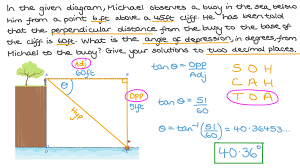 In the given diagram, Michael observes a buoy in the sea below
him from a point 6ft above a 45ft cliff. He has been told
that the perpendicular distance from the buoy to the base of
the cliff is 60ft. What is the angle of depression, in degrees, from
Michael to the buoy? Give your solutions to two decimal places.
Adj
60ft
θ
Hyp
Opp
51ft
tan θ = OPP
Adj
S O H
C A H
T O A
tan θ = 51
60
θ = tan⁻¹ (51/60) = 40.36453...
40.36°